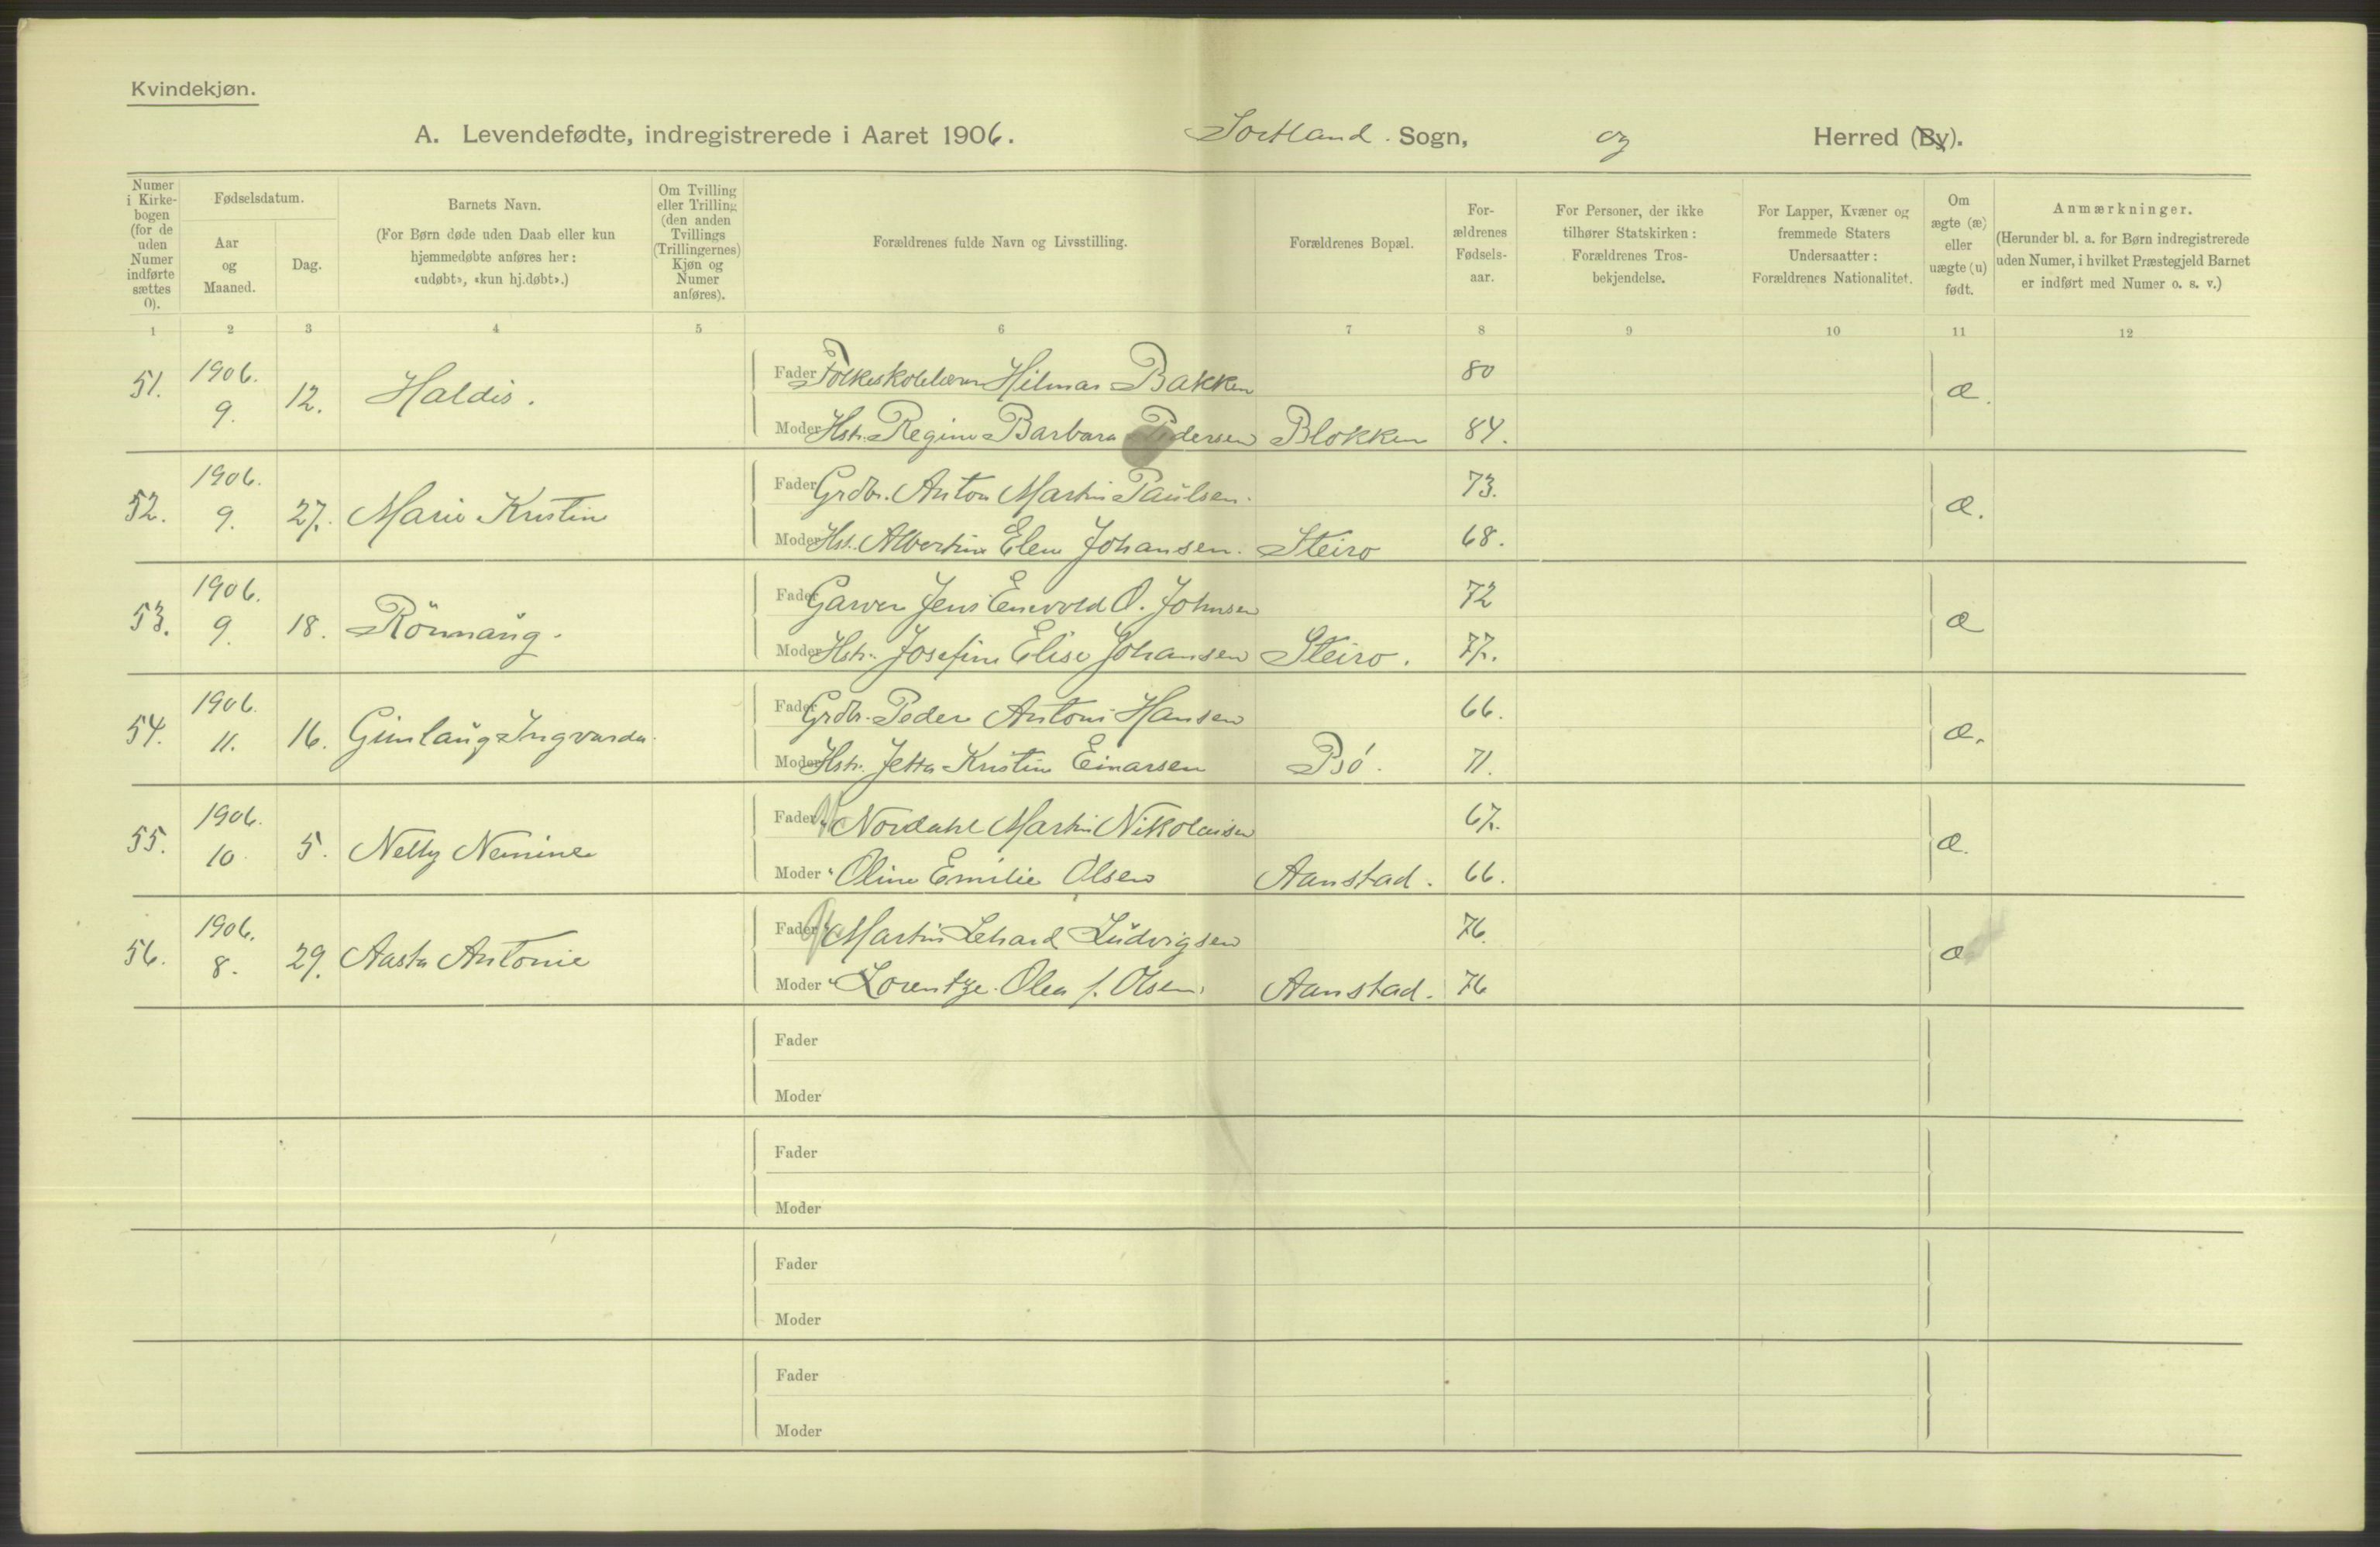 Kvindekjøn.
A. Levendefødte, indregistrerede i Aaret 1906. Sortland Sogn, og Herred (By).
Numer i Kirkebogen (for de uden Numer indførte sættes 0).
Fødselsdatum.
Aar og Maaned.
Dag.
Barnets Navn.
(For Børn døde uden Daab eller kun hjemmedøbte anføres her: «udøbt», «kun hj.døbt».)
Om Tvilling eller Trilling (den anden Tvillings (Trillingernes) Kjøn og Numer anføres).
Forældrenes fulde Navn og Livsstilling.
Forældrenes Bopæl.
Forældrenes Fødselsaar.
For Personer, der ikke tilhører Statskirken: Forældrenes Trosbekjendelse.
For Lapper, Kvæner og fremmede Staters Undersaatter: Forældrenes Nationalitet.
Om ægte (æ) eller uægte (u) født.
Anmærkninger.
(Herunder bl. a. for Børn indregistrerede uden Numer, i hvilket Præstegjeld Barnet er indført med Numer o. s. v.)
1 2 3 4 5 6 7 8 9 10 11 12
51. 1906. 9. 12. Haldis. æ.
Fader Folkeskolelærer Hilmar Bakken 80
Moder Hstr. Regine Barbara Pedersen Blokken 84.
52. 1906. 9. 27. Marie Kristine æ.
Fader Grdbr. Anton Martin Paulsen. 73.
Moder Hst. Albertine Elene Johansen. Steiro 68.
53. 1906. 9. 18. Rönnaug. æ
Fader Garver Jens Enevold O. Johnsen 72
Moder Hstr. Josefine Elise Johansen Steiro. 77.
54. 1906. 11. 16. Gunlaug Ingvarda. æ.
Fader Grdbr. Peder Antoni Hansen 66.
Moder Hstr. Jetta Kristine Einarsen Bø. 71.
55. 1906. 10. 5. Nelly Nemine æ.
Fader " Nordahl Martin Nikolaisen 67.
Moder " Oline Emilie Olsen Aanstad. 66.
56. 1906. 8. 29. Aasta Antonie æ
Fader " Martin Lehard Ludvigsen 76.
Moder " Lorentze Olea f. Olsen. Aanstad. 76
Fader
Moder
Fader
Moder
Fader
Moder
Fader
Moder